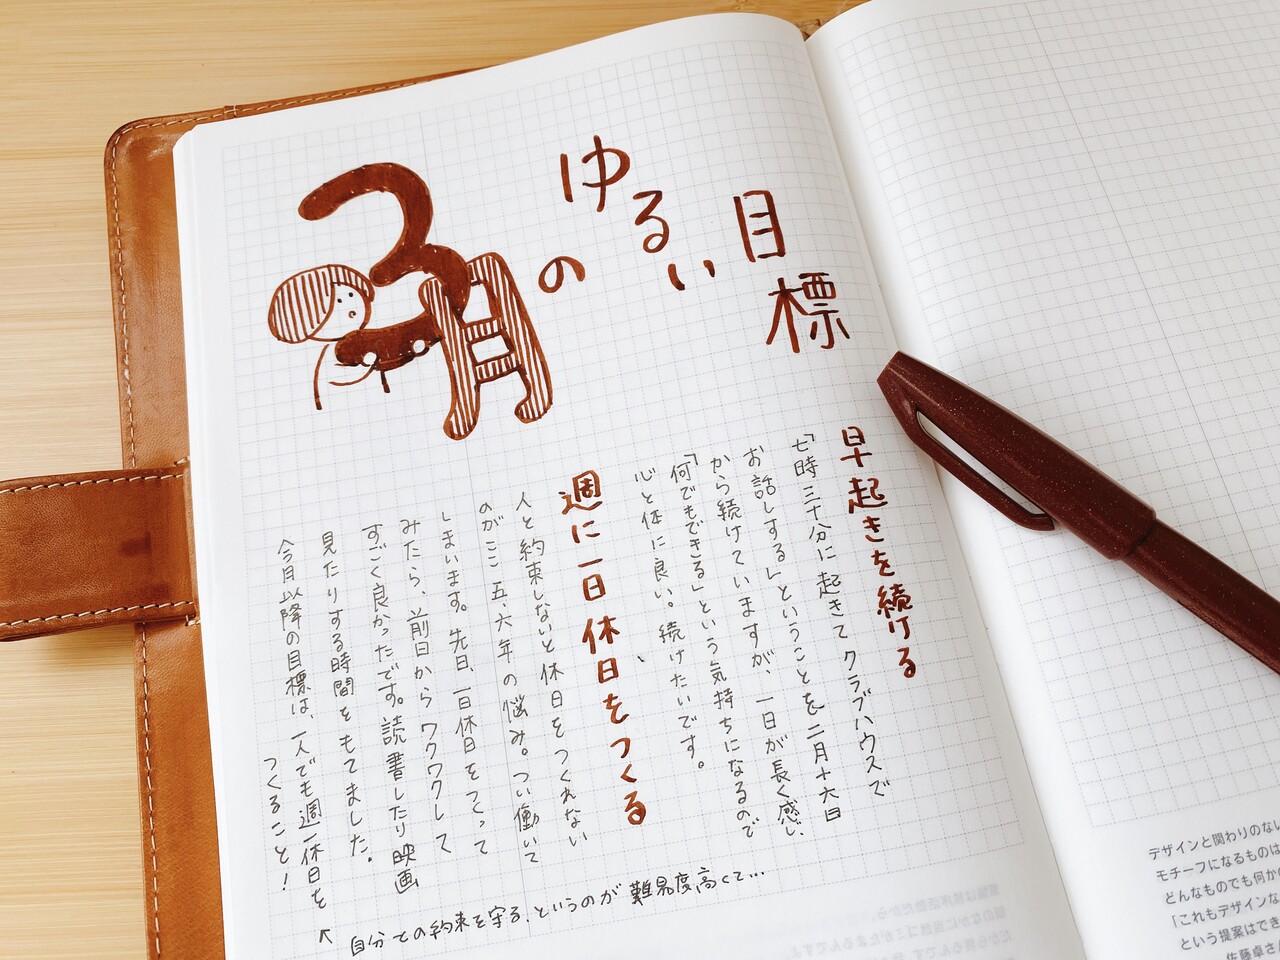 3月の
ゆるい
目標
早起きを続ける
「七時三十分に起きてクラブハウスで
お話しする」ということを二月十六日
から続けていますが、一日が長く感じ
「何でもできる」という気持ちになるので
心と体に良い。続けたいです。
週に一日休日をつくる
人と約束しないと休日をつくれない
のがここ五、六年の悩み。つい働いて
しまいます。先日、一日休日をつくって
みたら、前日からワクワクして
すごく良かったです。読書したり映画
見たりする時間をもてました。
今月以降の目標は、一人でも週一休日を
つくること!
↑自分との約束を守る、というのが難易度高くて…
デザインと関わりのない
モチーフになるものは
どんなものでも何かの
「これもデザインな
という提案はでき
佐藤卓さん